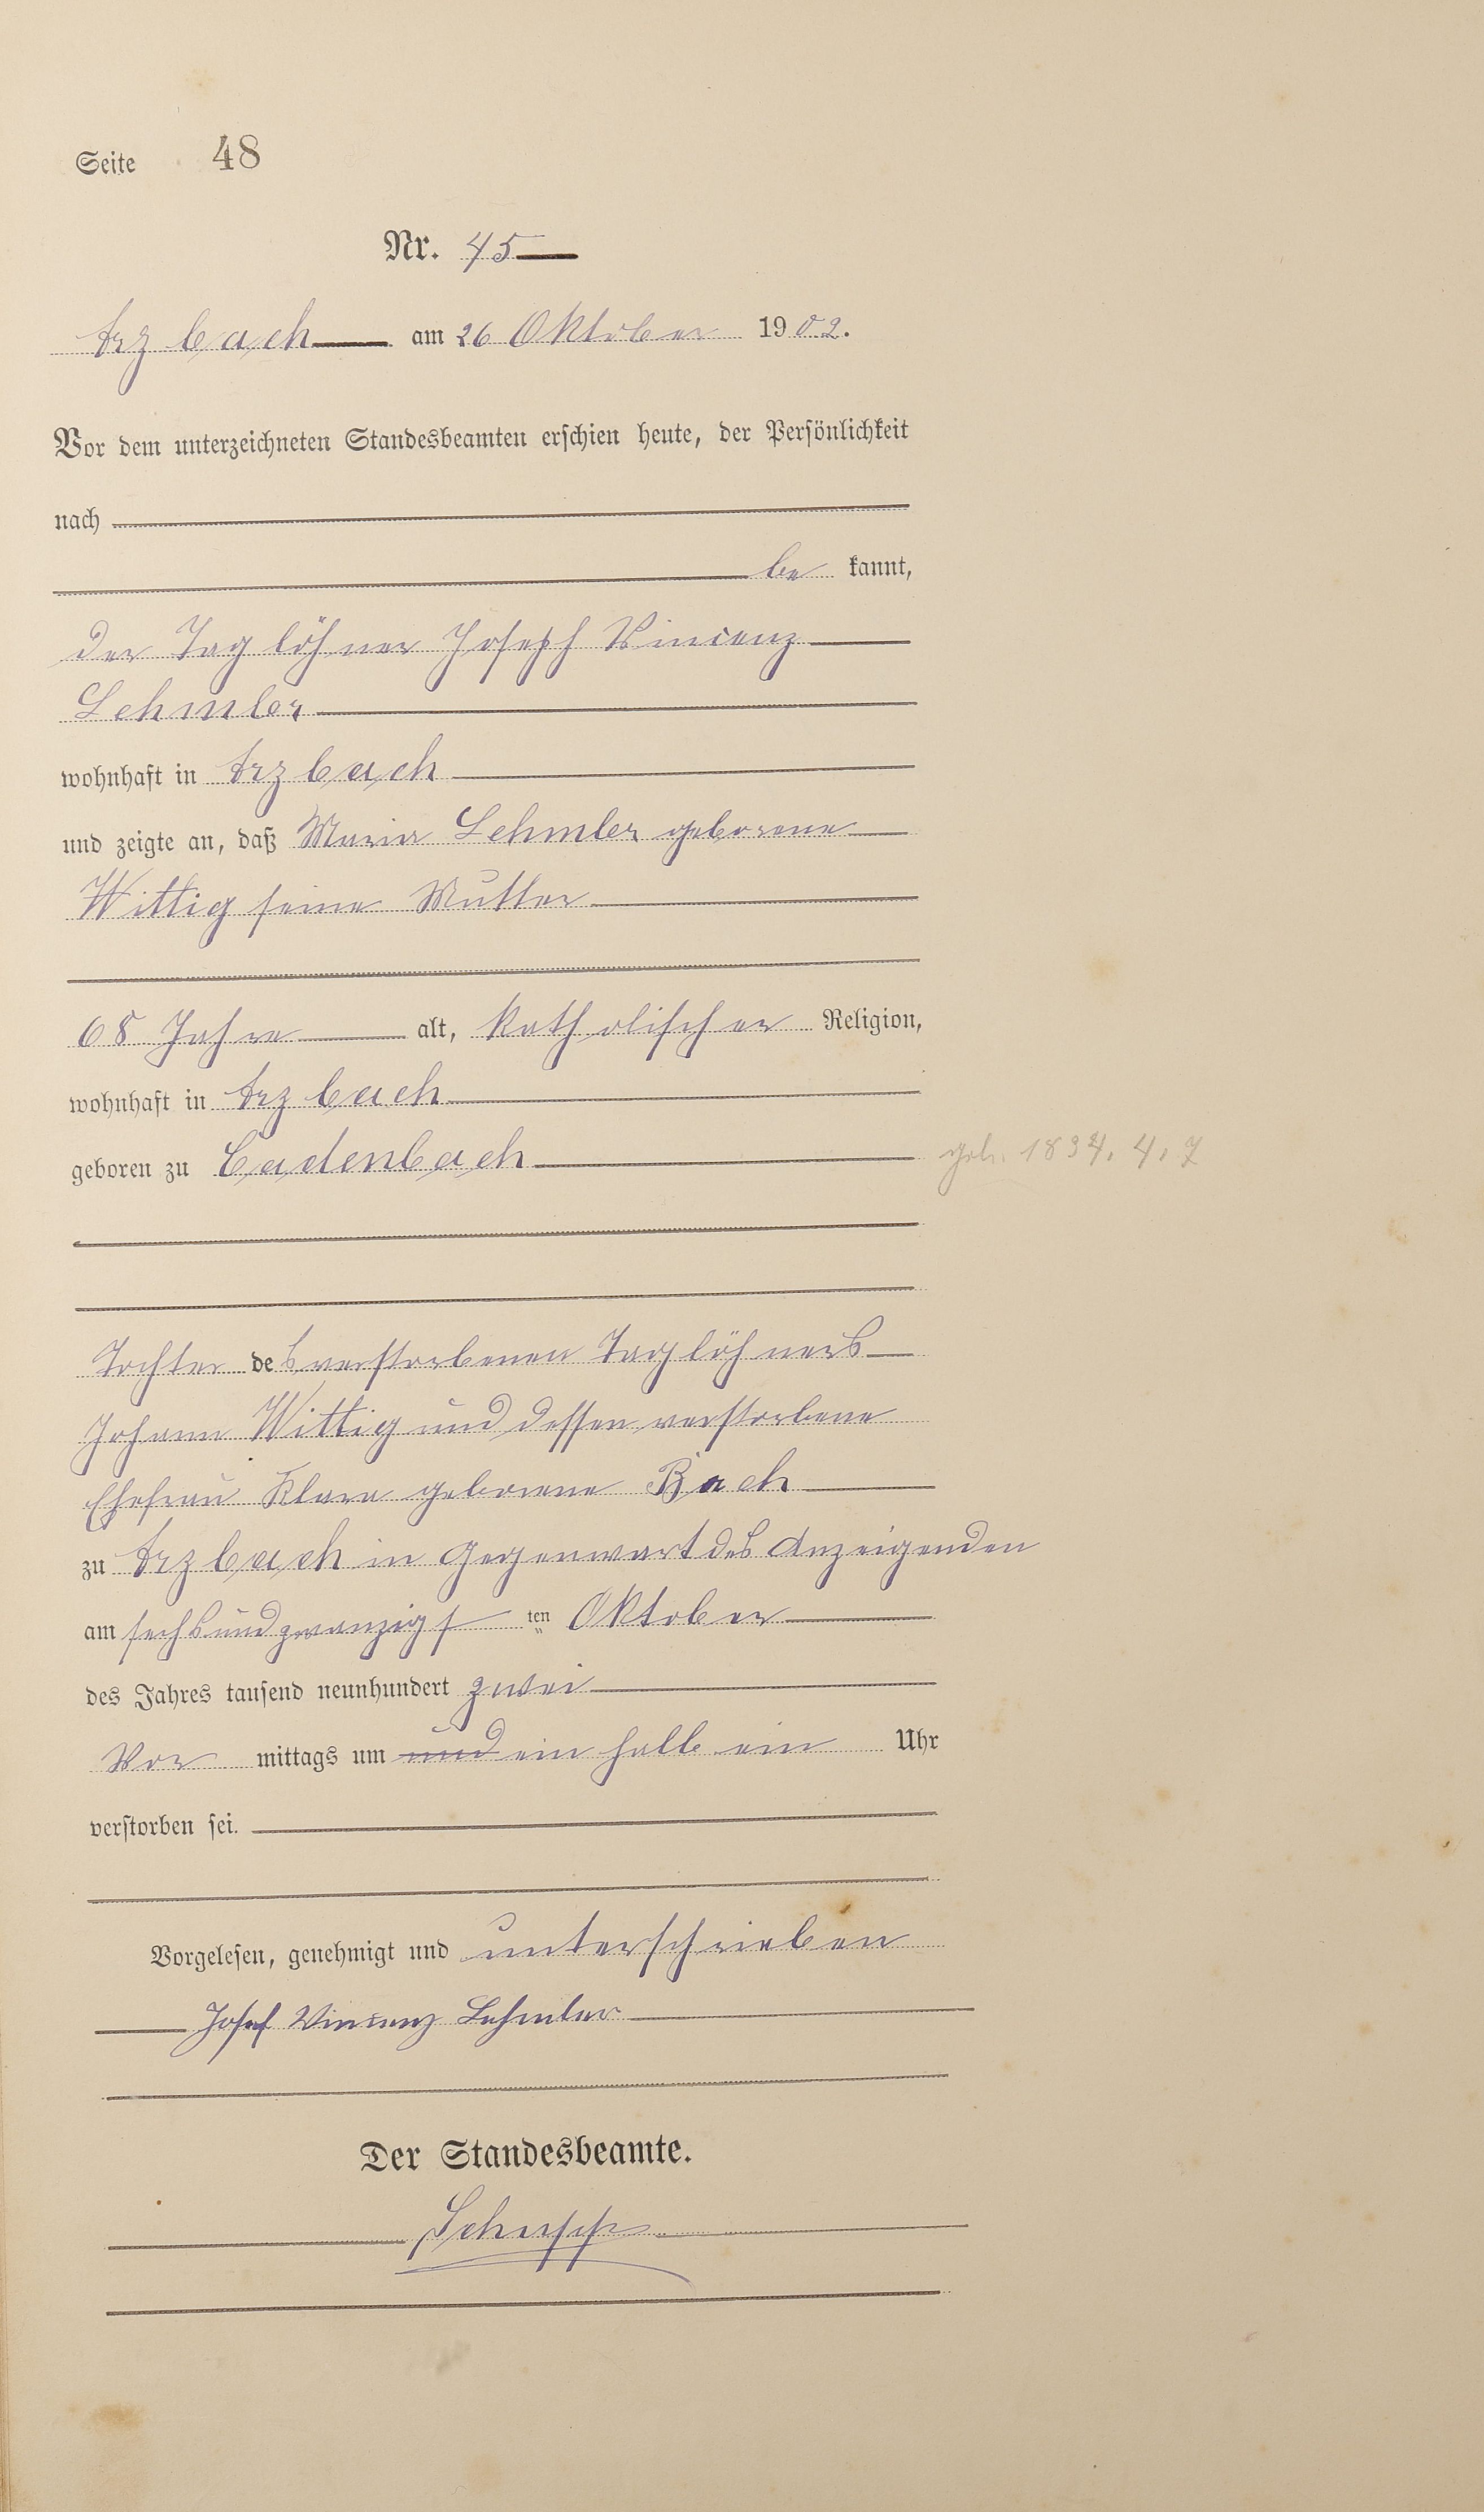 Seite 48
Nr. 45
Arzbach am 26 Oktober 1902.
Vor dem unterzeichneten Standesbeamten erschien heute, der Persönlichkeit
nach
be kannt,
der Taglöhner Joseph Vincenz
Lehmler
wohnhaft in Arzbach
und zeigte an, daß Maria Lehmler geborene
Wittig seine Mutter
68 Jahre alt, katholischer Religion,
wohnhaft in Arzbach
geboren zu Cadenbach geb. 1834. 4. 7
Tochter des verstorbenen Taglöhners
Johann Wittig und dessen verstorbene
Ehefrau Klara geborene Bach
zu Arzbach in Gegenwart des Anzeigenden
am sechsundzwanzigsten Oktober
des Jahres tausend neunhundert zwei
Vor mittags um und ein halb ein Uhr
verstorben sei.
Vorgelesen, genehmigt und unterschrieben
Josef Vincenz Lehmler
Der Standesbeamte.